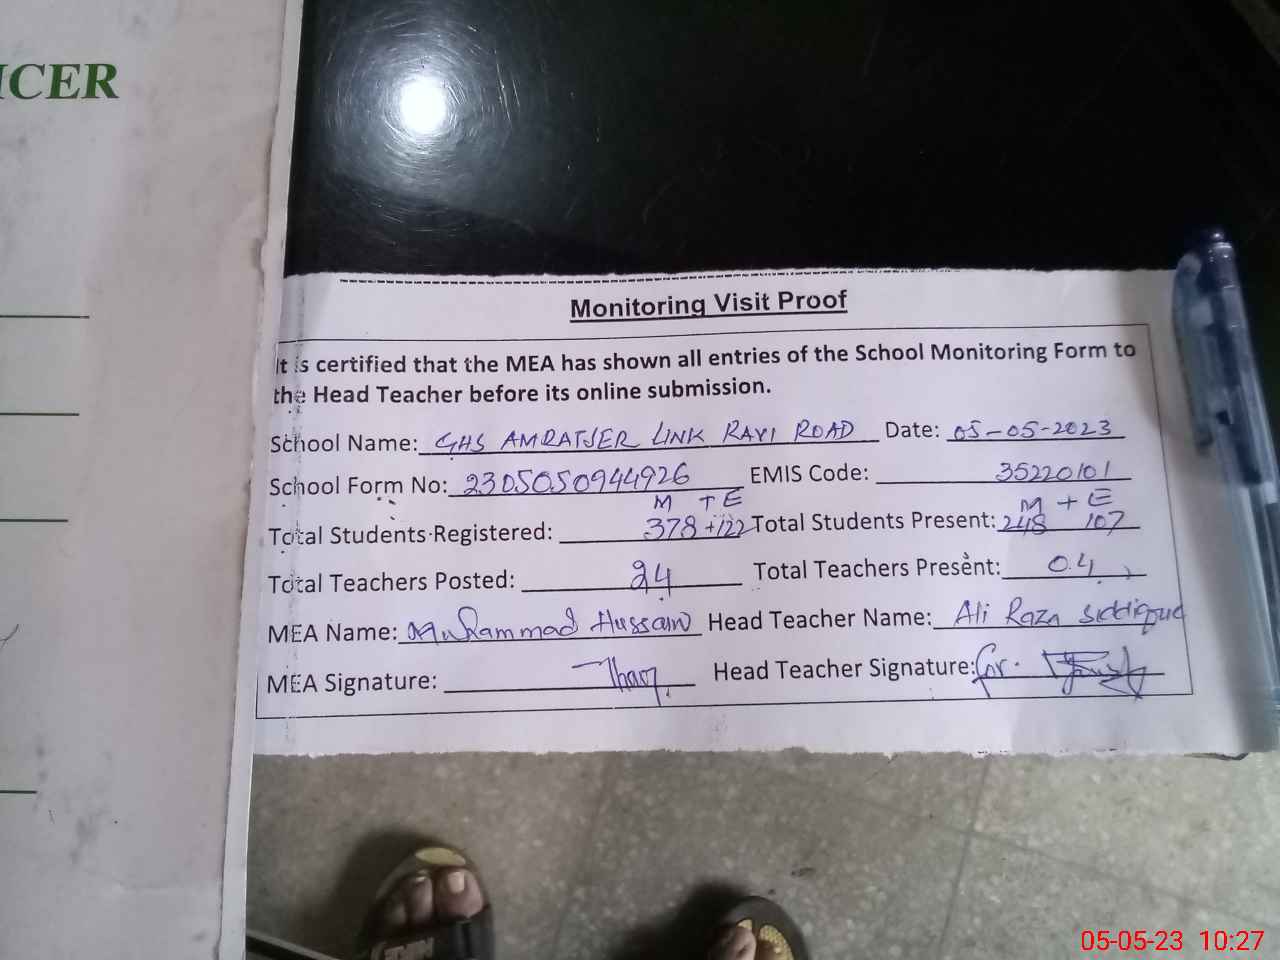 ICER
Monitoring Visit Proof
It is certified that the MEA has shown all entries of the School Monitoring Form to
the Head Teacher before its online submission.
School Name: GHS AMRATSER LINK RAVI ROAD Date: 05-05-2023
School Form No: 2305050944926 EMIS Code: 35220101
M + E M + E
Total Students Registered: 378+122 Total Students Present: 248 107
Total Teachers Posted: 24 Total Teachers Present: 04
MEA Name: Muhammad Hussain Head Teacher Name: Ali Raza Siddique
MEA Signature: Head Teacher Signature: for.
05-05-23 10:27